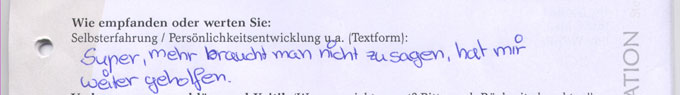 Wie empfanden oder werten Sie:
Selbsterfahrung / Persönlichkeitsentwicklung u.a. (Textform):
Super, mehr braucht man nicht zu sagen, hat mir
weiter geholfen.
ATION